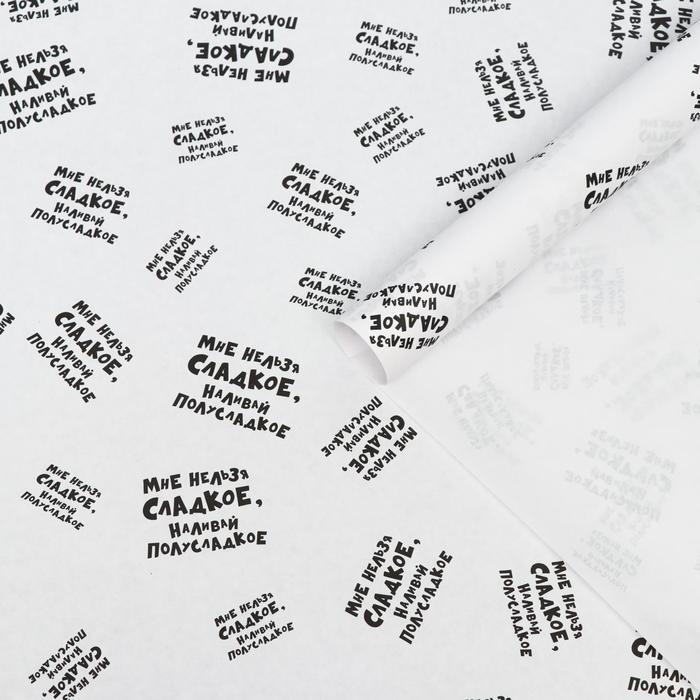 Мне нельзя
Сладкое,
Наливай
Полусладкое
Мне нельзя
Сладкое,
Наливай
Полусладкое
Мне нельзя
Сладкое,
Наливай
Полусладкое
Мне нельзя
Сладкое,
Наливай
Полусладкое
Мне нельзя
Сладкое,
Наливай
Полусладкое
Мне нельзя
Сладкое,
Наливай
Полусладкое
Мне нельзя
Сладкое,
Наливай
Полусладкое
Мне нельзя
Сладкое,
Наливай
Полусладкое
Мне нельзя
Сладкое,
Наливай
Полусладкое
Мне нельзя
Сладкое,
Наливай
Полусладкое
Мне нельзя
Сладкое,
Наливай
Полусладкое
Мне нельзя
Сладкое,
Наливай
Полусладкое
Мне нельзя
Сладкое,
Наливай
Полусладкое
Мне нельзя
Сладкое,
Наливай
Полусладкое
Мне нельзя
Сладкое,
Наливай
Полусладкое
Мне нельзя
Сладкое,
Наливай
Полусладкое
Мне нельзя
Сладкое,
Наливай
Полусладкое
Мне нельзя
Сладкое,
Наливай
Полусладкое
Мне нельзя
Сладкое,
Наливай
Полусладкое